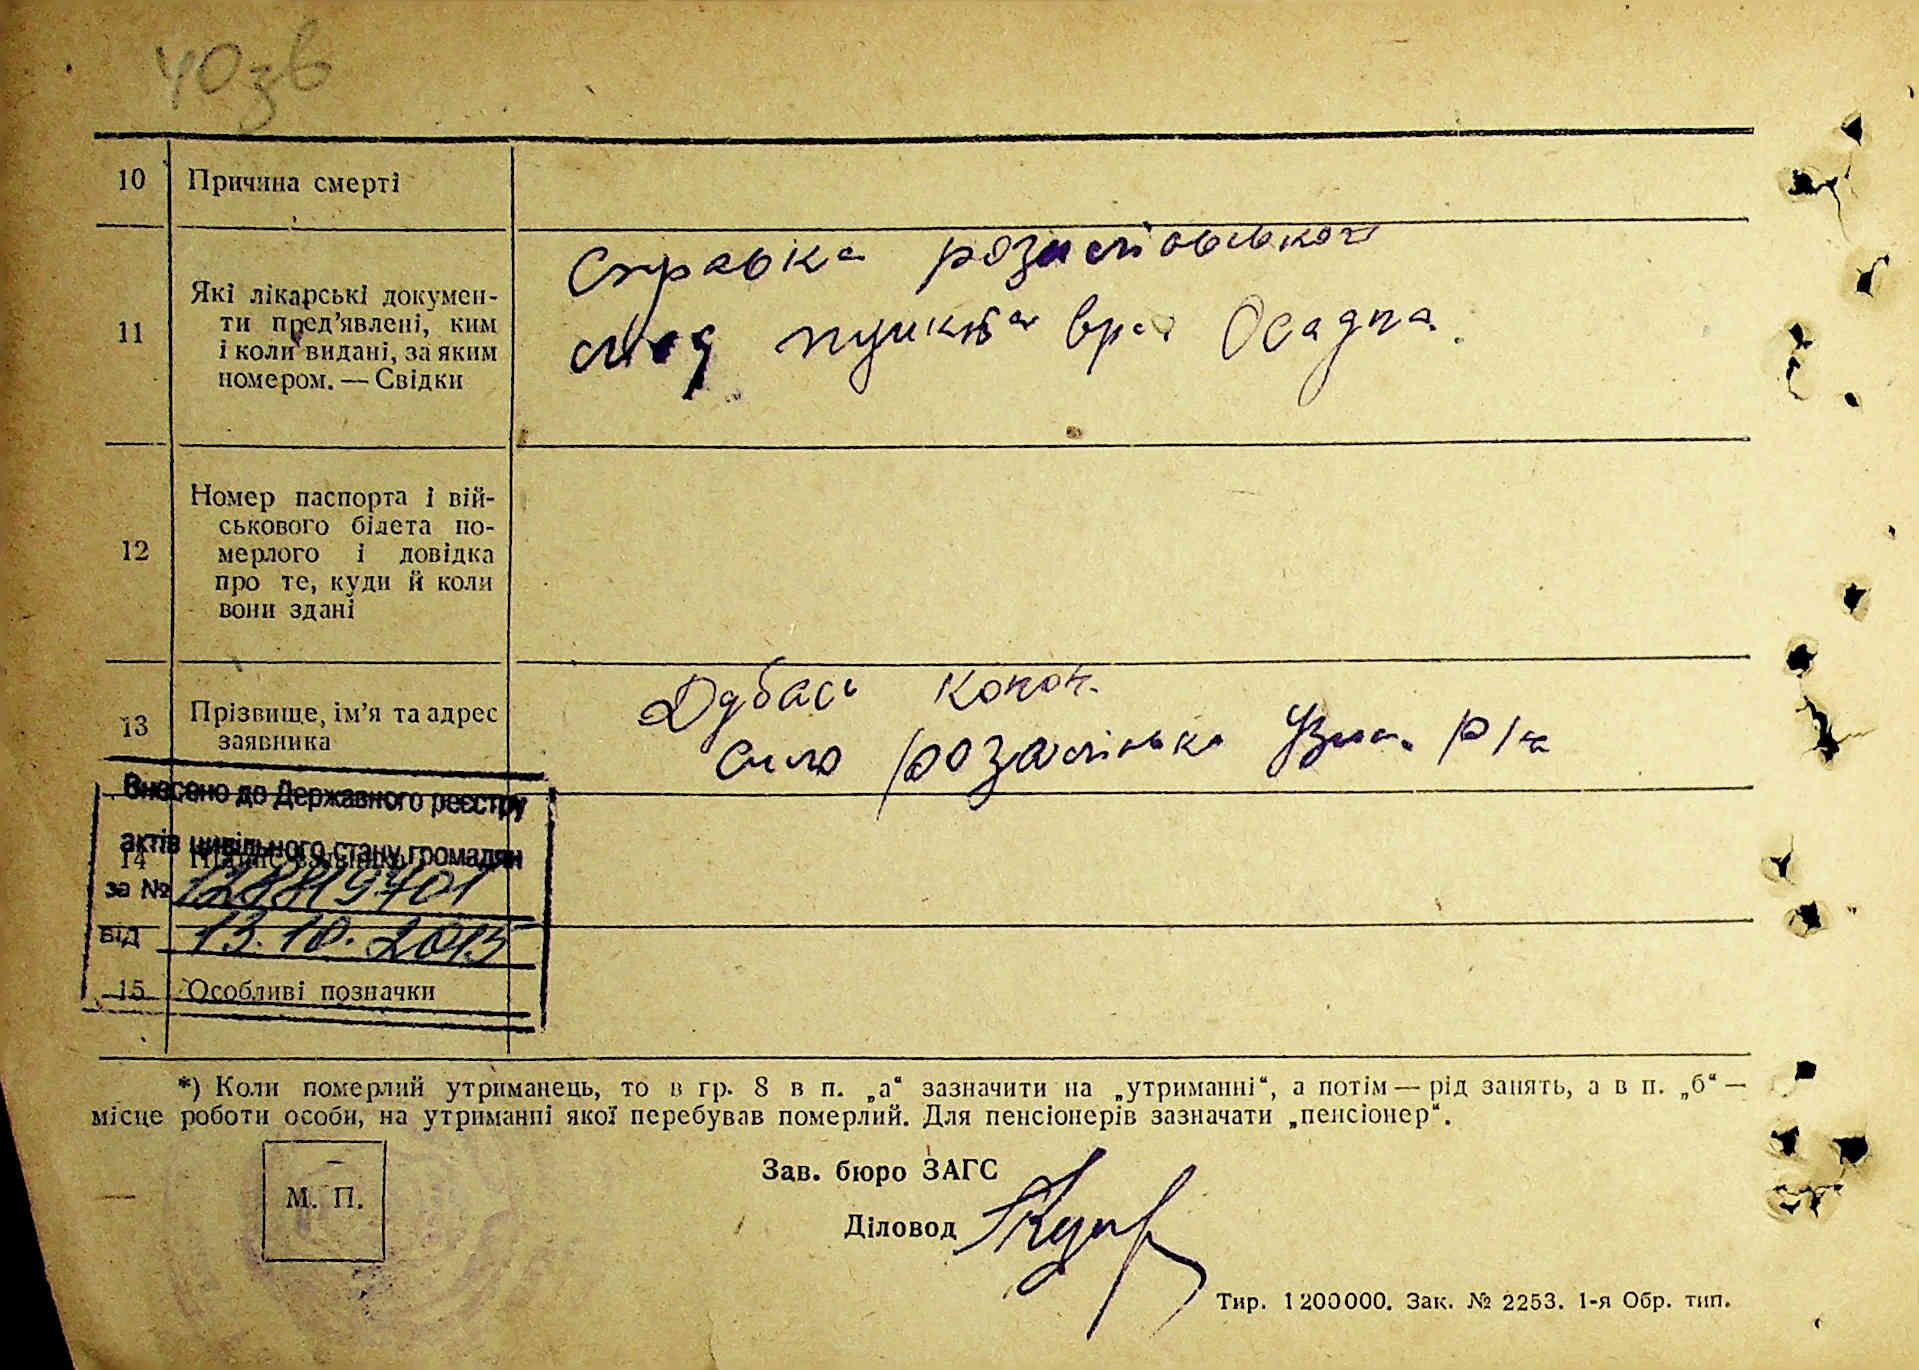 40 зв
10 Причина смерті
11 Які лікарські докумен-
ти пред'явлені, ким
і коли видані, за яким
номером. — Свідки
Справка розалівської
мед пункта вра Осадча.
12 Номер паспорта і вій-
ськового білета по-
мерлого і довідка
про те, куди й коли
вони здані
13 Прізвище, ім'я та адрес
заявника
Дубась Конон.
Село розалівка Узин. р/на
Внесено до Державного реєстру
актів цивільного стану громадян
14
за № 12889701
від 13.10.2015
15 Особливі позначки
*) Коли померлий утриманець, то в гр. 8 в п. „а“ зазначити на „утриманні“, а потім — рід занять, а в п. „б“ —
місце роботи особи, на утриманні якої перебував померлий. Для пенсіонерів зазначати „пенсіонер“.
М. П.
Зав. бюро ЗАГС
Діловод
Тир. 1200000. Зак. № 2253. 1-я Обр. тип.